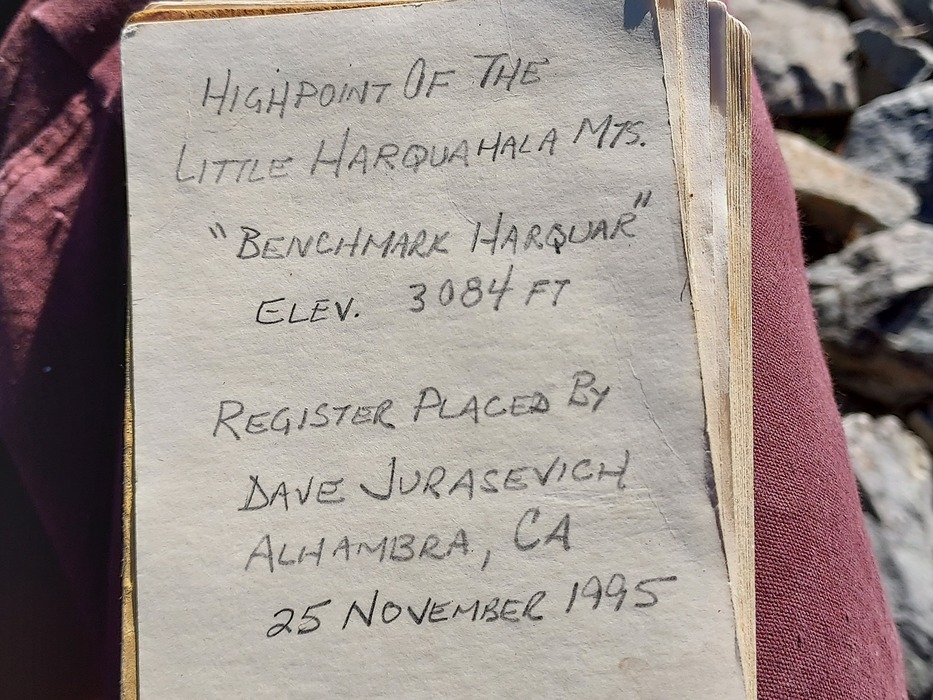 HIGHPOINT OF THE
LITTLE HARQUAHALA MTS.
"BENCHMARK HARQUAR"
ELEV. 3084 FT
REGISTER PLACED BY
DAVE JURASEVICH
ALHAMBRA, CA
25 NOVEMBER 1995